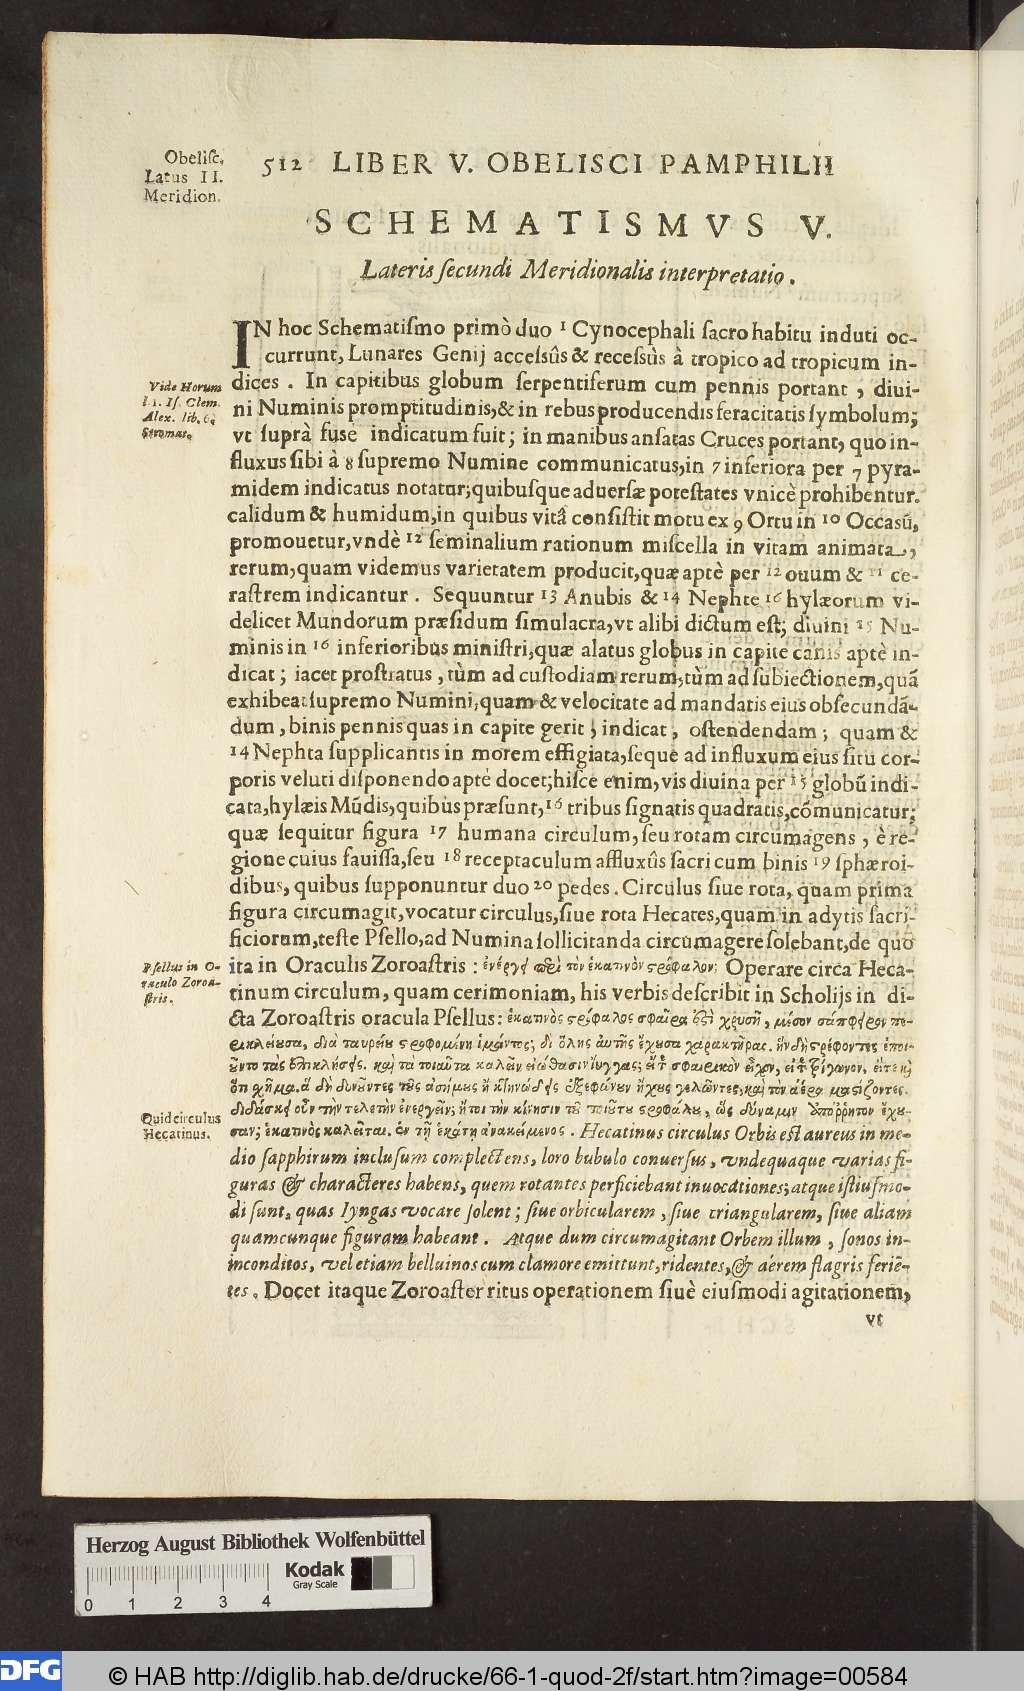 Obeliſc.
Latus II.
Meridion.
512 LIBER V. OBELISCI PAMPHILII
SCHEMATISMVS V.
Lateris ſecundi Meridionalis interpretatio.
IN hoc Schematiſmo primò duo 1 Cynocephali ſacro habitu induti oc-
currunt, Lunares Genij acceſsûs & receſsûs à tropico ad tropicum in-
dices. In capitibus globum ſerpentiferum cum pennis portant, diui-
Vide Horum
l. 1. Iſ. Clem.
Alex. lib. 6.
Stromat.
ni Numinis promptitudinis, & in rebus producendis feracitatis ſymbolum;
vt ſuprà fuſè indicatum fuit; in manibus anſatas Cruces portant, quo in-
fluxus ſibi à 8 ſupremo Numine communicatus, in 7 inferiora per 7 pyra-
midem indicatus notatur; quibuſque aduerſæ poteſtates vnicè prohibentur.
calidum & humidum, in quibus vitâ conſiſtit motu ex 9 Ortu in 10 Occasũ,
promouetur, vndè 12 ſeminalium rationum miſcella in vitam animata,
rerum, quam videmus varietatem producit, quæ aptè per 12 ouum & 11 ce-
raſtrem indicantur. Sequuntur 13 Anubis & 14 Nephte 16 hylæorum vi-
delicet Mundorum præſidum ſimulacra, vt alibi dictum eſt; diuini 15 Nu-
minis in 16 inferioribus miniſtri, quæ alatus globus in capite canis aptè in-
dicat; iacet proſtratus, tùm ad cuſtodiam rerum, tùm ad ſubiectionem, quã
exhibeat ſupremo Numini, quam & velocitate ad mandatis eius obſecundã-
dum, binis pennis quas in capite gerit, indicat, oſtendendam; quam &
14 Nephta ſupplicantis in morem effigiata, ſeque ad influxum eius ſitu cor-
poris veluti diſponendo aptè docet; hiſce enim, vis diuina per 15 globũ indi-
cata, hylæis Mũdis, quibus præſunt, 16 tribus ſignatis quadratis, cõmunicatur;
quæ ſequitur figura 17 humana circulum, ſeu rotam circumagens, è re-
gione cuius fauiſſa, ſeu 18 receptaculum affluxûs ſacri cum binis 19 ſphæroi-
dibus, quibus ſupponuntur duo 20 pedes. Circulus ſiue rota, quam prima
figura circumagit, vocatur circulus, ſiue rota Hecates, quam in adytis ſacri-
ficiorum, teſte Pſello, ad Numina ſollicitanda circumagere ſolebant, de quo
Pſellus in O-
raculo Zoroa-
ſtris.
ita in Oraculis Zoroaſtris: ἐνέργει περὶ τὸν ἑκατινὸν στρόφαλον; Operare circa Heca-
tinum circulum, quam cerimoniam, his verbis deſcribit in Scholijs in di-
cta Zoroaſtris oracula Pſellus: ἑκατινὸς στρόφαλος σφαῖρα ἐστὶ χρυσῆ, μέσον σάπφειρον πε-
ρικλείουσα, διὰ ταυρείου στρεφομένη ἱμάντος; δι' ὅλης αὐτῆς ἔχουσα χαρακτῆρας. ἣν δὴ στρέφοντες ἐποι-
οῦντο τὰς ἐπικλήσεις. καὶ τὰ τοιαῦτα καλεῖν εἰώθασιν ἴυγγας; εἴτε σφαιρικὸν εἶχον, εἴτε τρίγωνον, εἴτε
σχῆμα. ἃ δὴ δονοῦντες τοὺς ἀσήμους ἢ κτηνώδεις ἐξεφώνουν ἤχους γελῶντες, καὶ τὸν ἀέρα μαστίζοντες.
διδάσκει οὖν τὴν τελετὴν ἐνεργεῖν; ἤτοι τὴν κίνησιν τοῦ τοιούτου στροφάλου, ὡς δύναμιν ἀπόῤῥητον ἔχου-
Quid circulus
Hecatinus.
σαν; ἑκατινὸς καλεῖται. ἐν τῇ ἑκάτῃ ἀνακείμενος. Hecatinus circulus Orbis eſt aureus in me-
dio ſapphirum incluſum complectens, loro bubulo conuerſus, vndequaque varias fi-
guras & characteres habens, quem rotantes perficiebant inuocationes; atque iſtiuſmo-
di ſunt, quas Iyngas vocare ſolent; ſiue orbicularem, ſiue triangularem, ſiue aliam
quamcunque figuram habeant. Atque dum circumagitant Orbem illum, ſonos in-
inconditos, vel etiam belluinos cum clamore emittunt, ridentes, & aërem flagris feriẽ-
tes. Docet itaque Zoroaſter ritus operationem ſiuè eiuſmodi agitationem,
vt
Herzog August Bibliothek Wolfenbüttel
Kodak
Gray Scale
0 1 2 3 4
DFG
© HAB http://diglib.hab.de/drucke/66-1-quod-2f/start.htm?image=00584